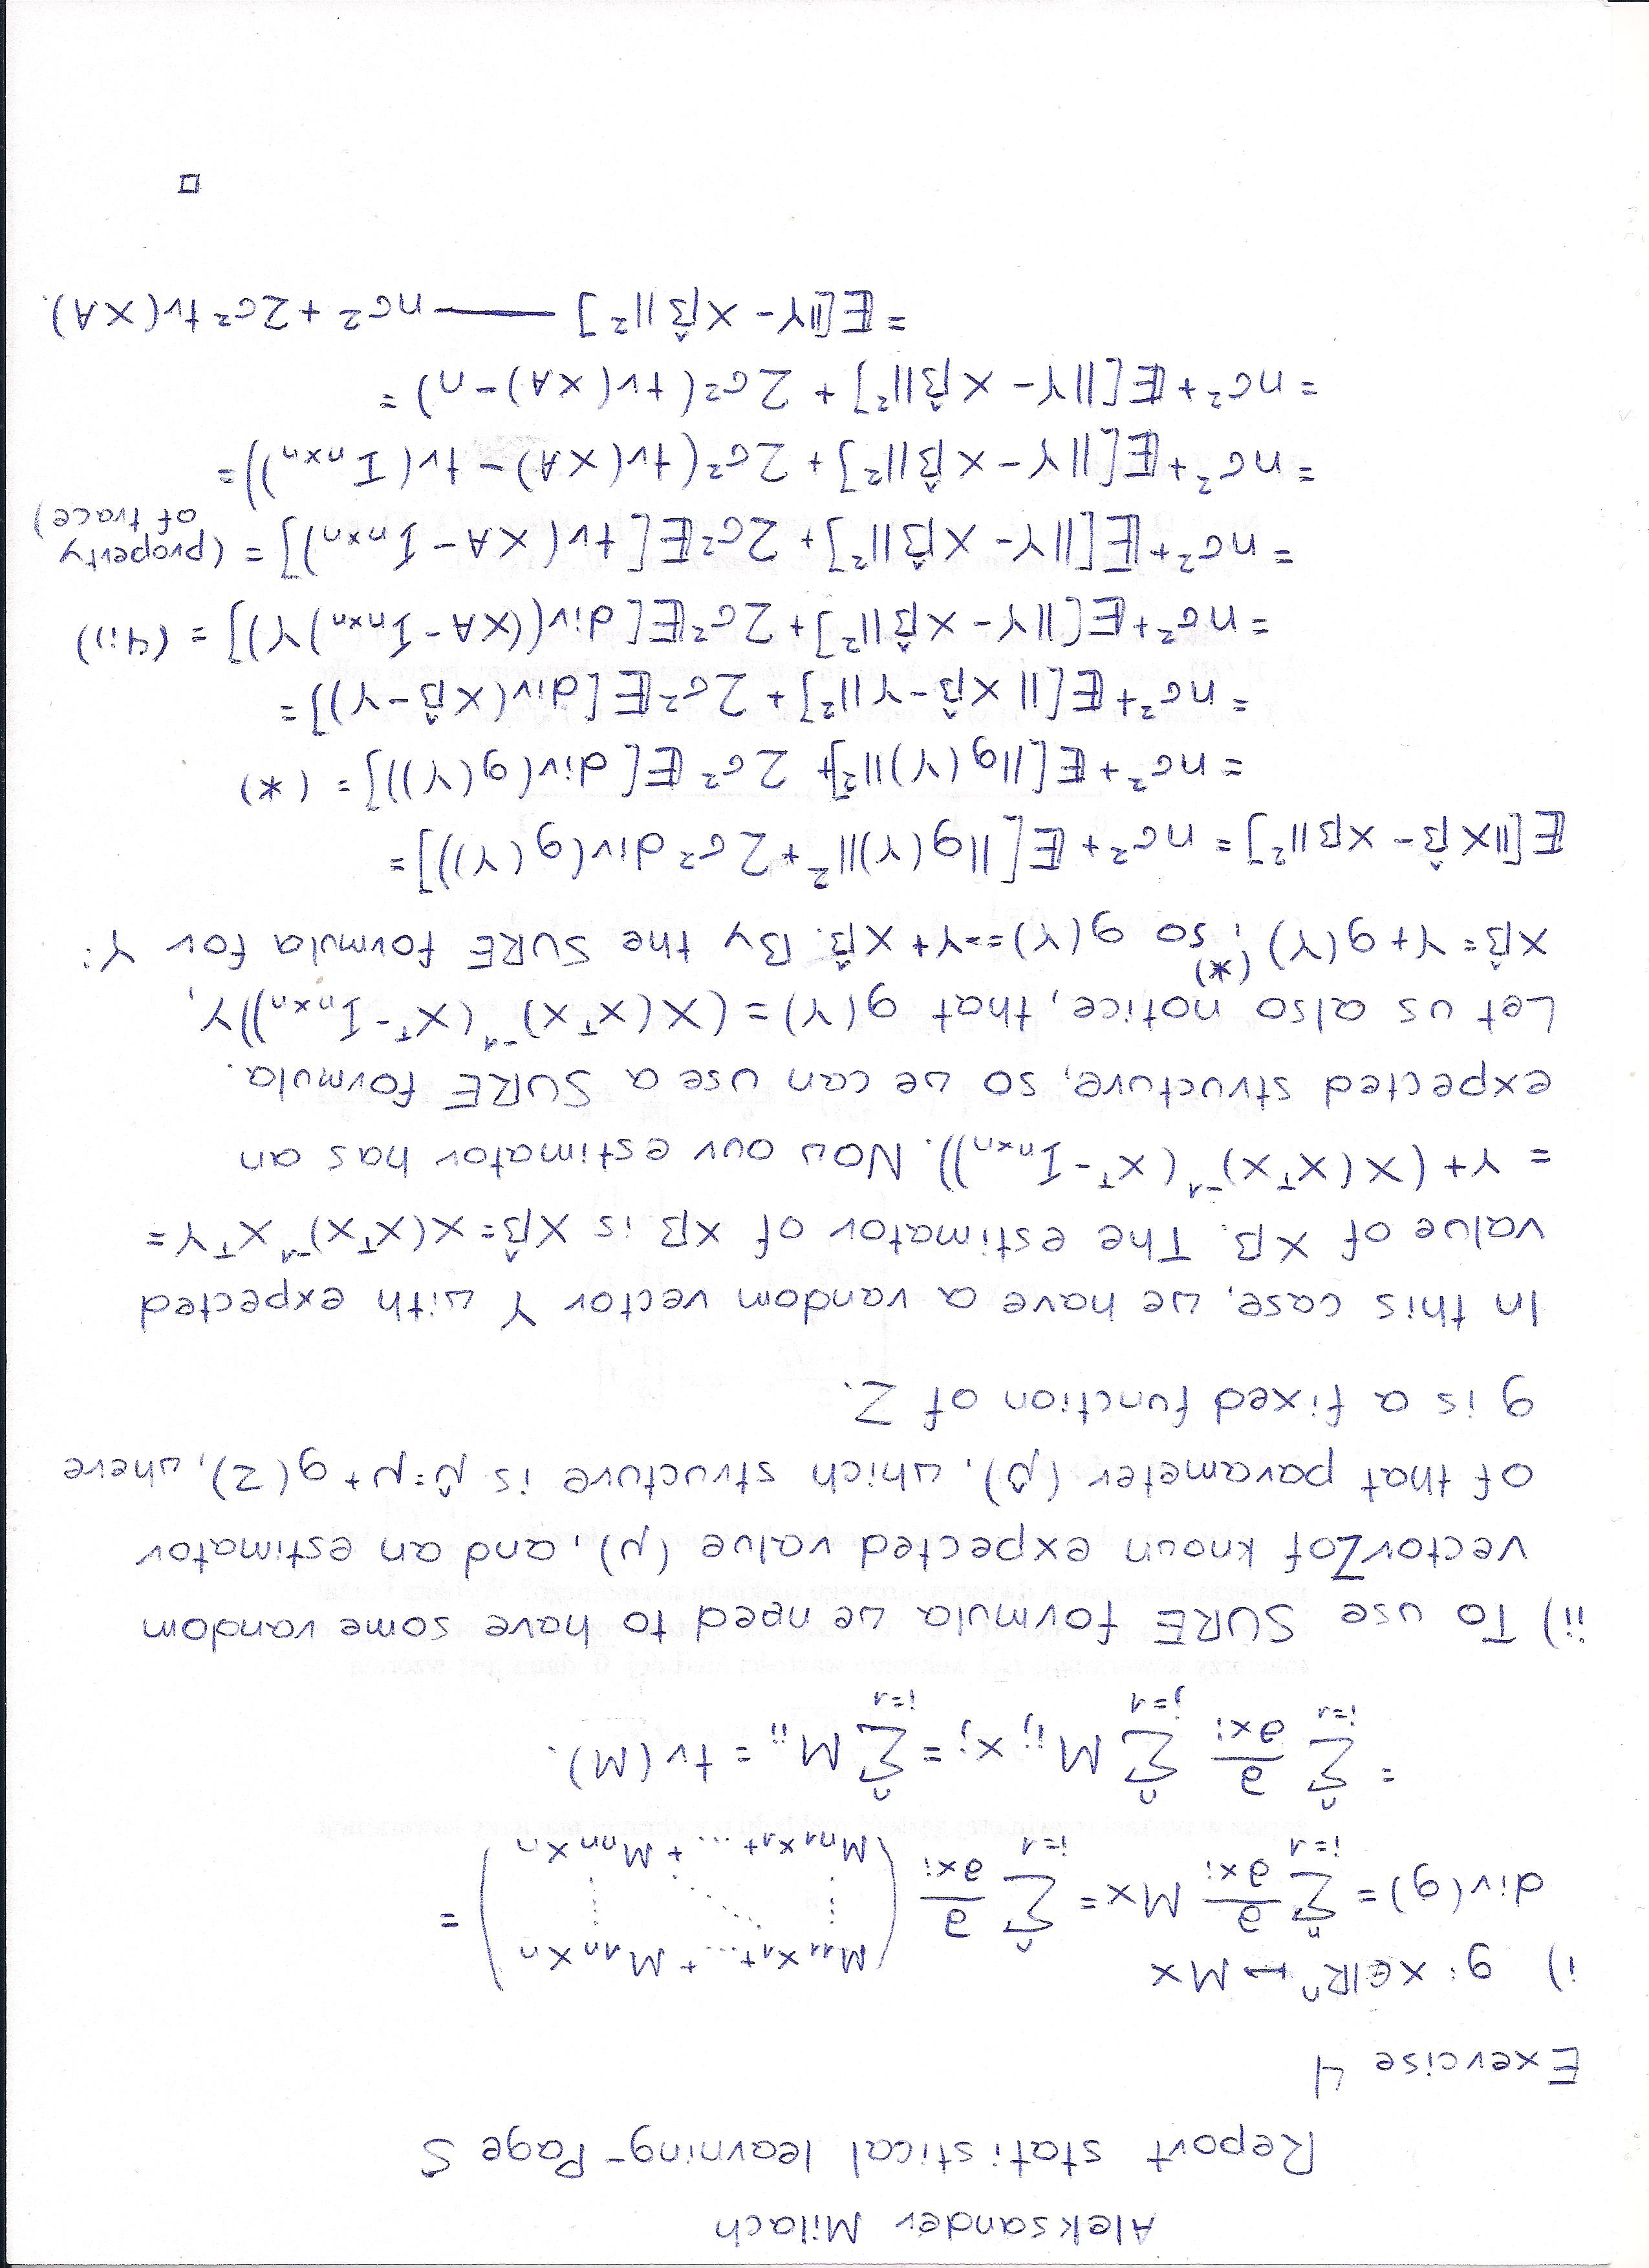 Aleksander Milach
Report statistical learning - Page 5
Exercise 4
i) g: x∈ℝⁿ ↦ Mx
div(g) = ∑_{i=1}^{n} ∂/∂x_i Mx = ∑_{i=1}^{n} ∂/∂x_i ( M_{11} x_1 + ... + M_{1n} x_n ⋮ ⋱ ⋮ M_{n1} x_1 + ... + M_{nn} x_n ) =
= ∑_{i=1}^{n} ∂/∂x_i ∑_{j=1}^{n} M_{ij} x_j = ∑_{i=1}^{n} M_{ii} = tr(M).
ii) To use SURE formula we need to have some random
vector Z of known expected value (μ), and an estimator
of that parameter (μ̂), which structure is μ̂ = μ + g(Z), where
g is a fixed function of Z.
In this case, we have a random vector Y with expected
value of Xβ. The estimator of Xβ is Xβ̂ = X(XᵀX)⁻¹XᵀY =
= Y + (X(XᵀX)⁻¹(Xᵀ - I_{n×n})). Now our estimator has an
expected structure, so we can use a SURE formula.
Let us also notice, that g(Y) = (X(XᵀX)⁻¹(Xᵀ - I_{n×n}))Y,
Xβ̂ = Y + g(Y) (*), so g(Y) = -Y + Xβ̂. By the SURE formula for Y:
𝔼[||Xβ̂ - Xβ||²] = nσ² + 𝔼[||g(Y)||² + 2σ² div(g(Y))] =
= nσ² + 𝔼[||g(Y)||²] + 2σ² 𝔼[div(g(Y))] = (*)
= nσ² + 𝔼[||Xβ̂ - Y||²] + 2σ² 𝔼[div(Xβ̂ - Y)] =
= nσ² + 𝔼[||Y - Xβ̂||²] + 2σ² 𝔼[div((XA - I_{n×n})Y)] = (4i)
= nσ² + 𝔼[||Y - Xβ̂||²] + 2σ² 𝔼[tr(XA - I_{n×n})] = (property of trace)
= nσ² + 𝔼[||Y - Xβ̂||²] + 2σ²(tr(XA) - tr(I_{n×n})) =
= nσ² + 𝔼[||Y - Xβ̂||²] + 2σ²(tr(XA) - n) =
= 𝔼[||Y - Xβ̂||²] — nσ² + 2σ² tr(XA).
□